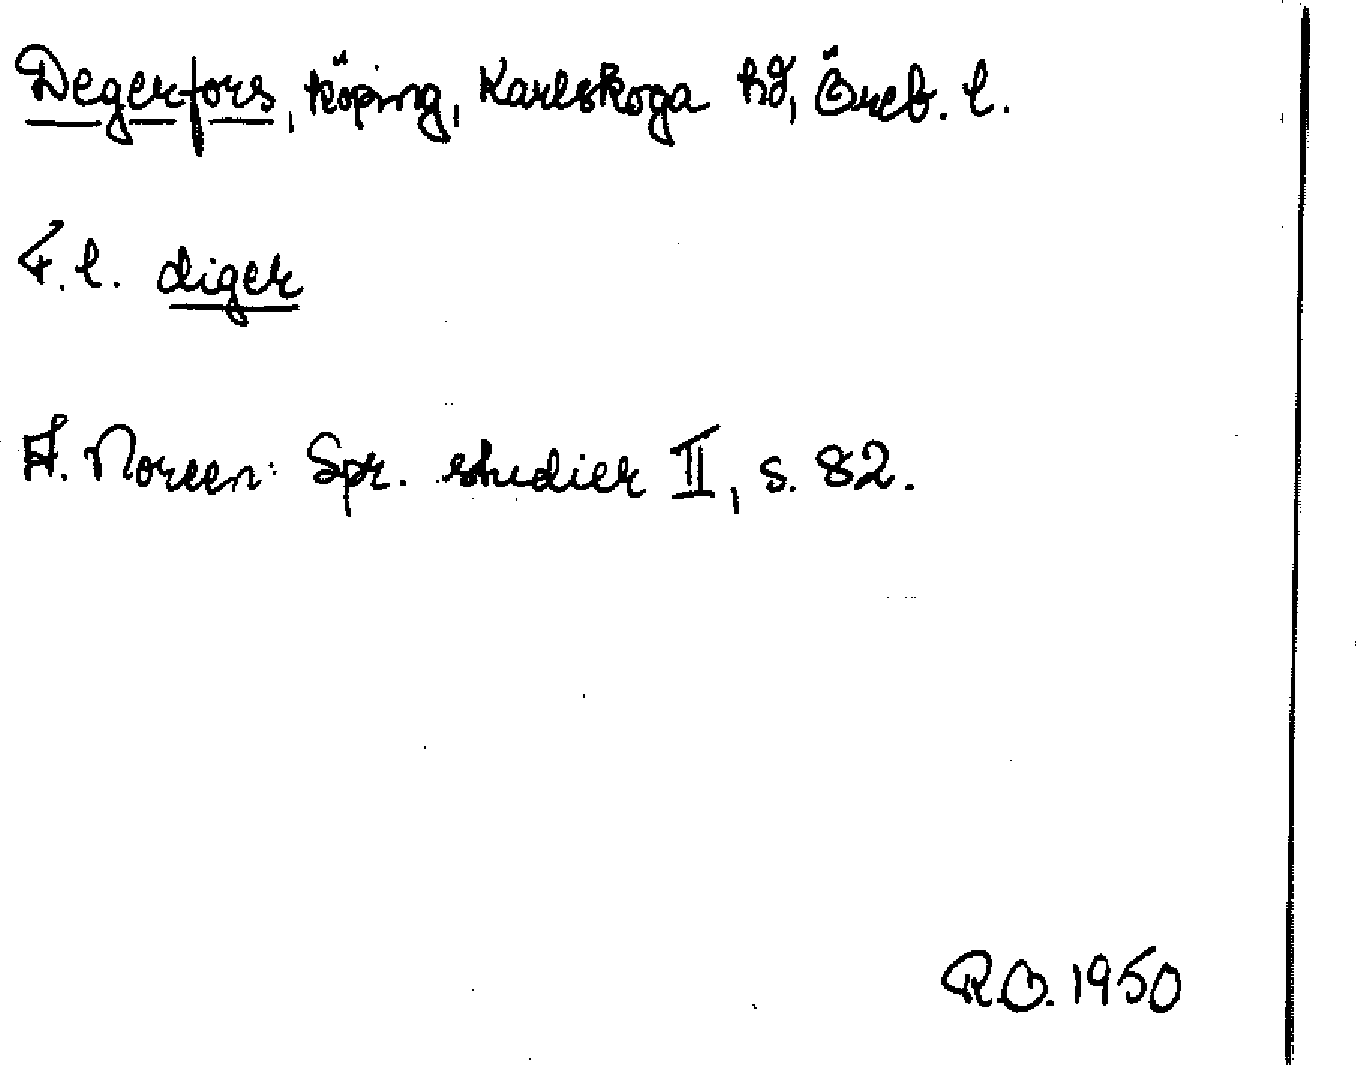 Degerfors, köping, Karlskoga hd, Öreb. l.
F.l. diger
A. Noreen: Spr. studier II, s. 82.
R.O. 1950